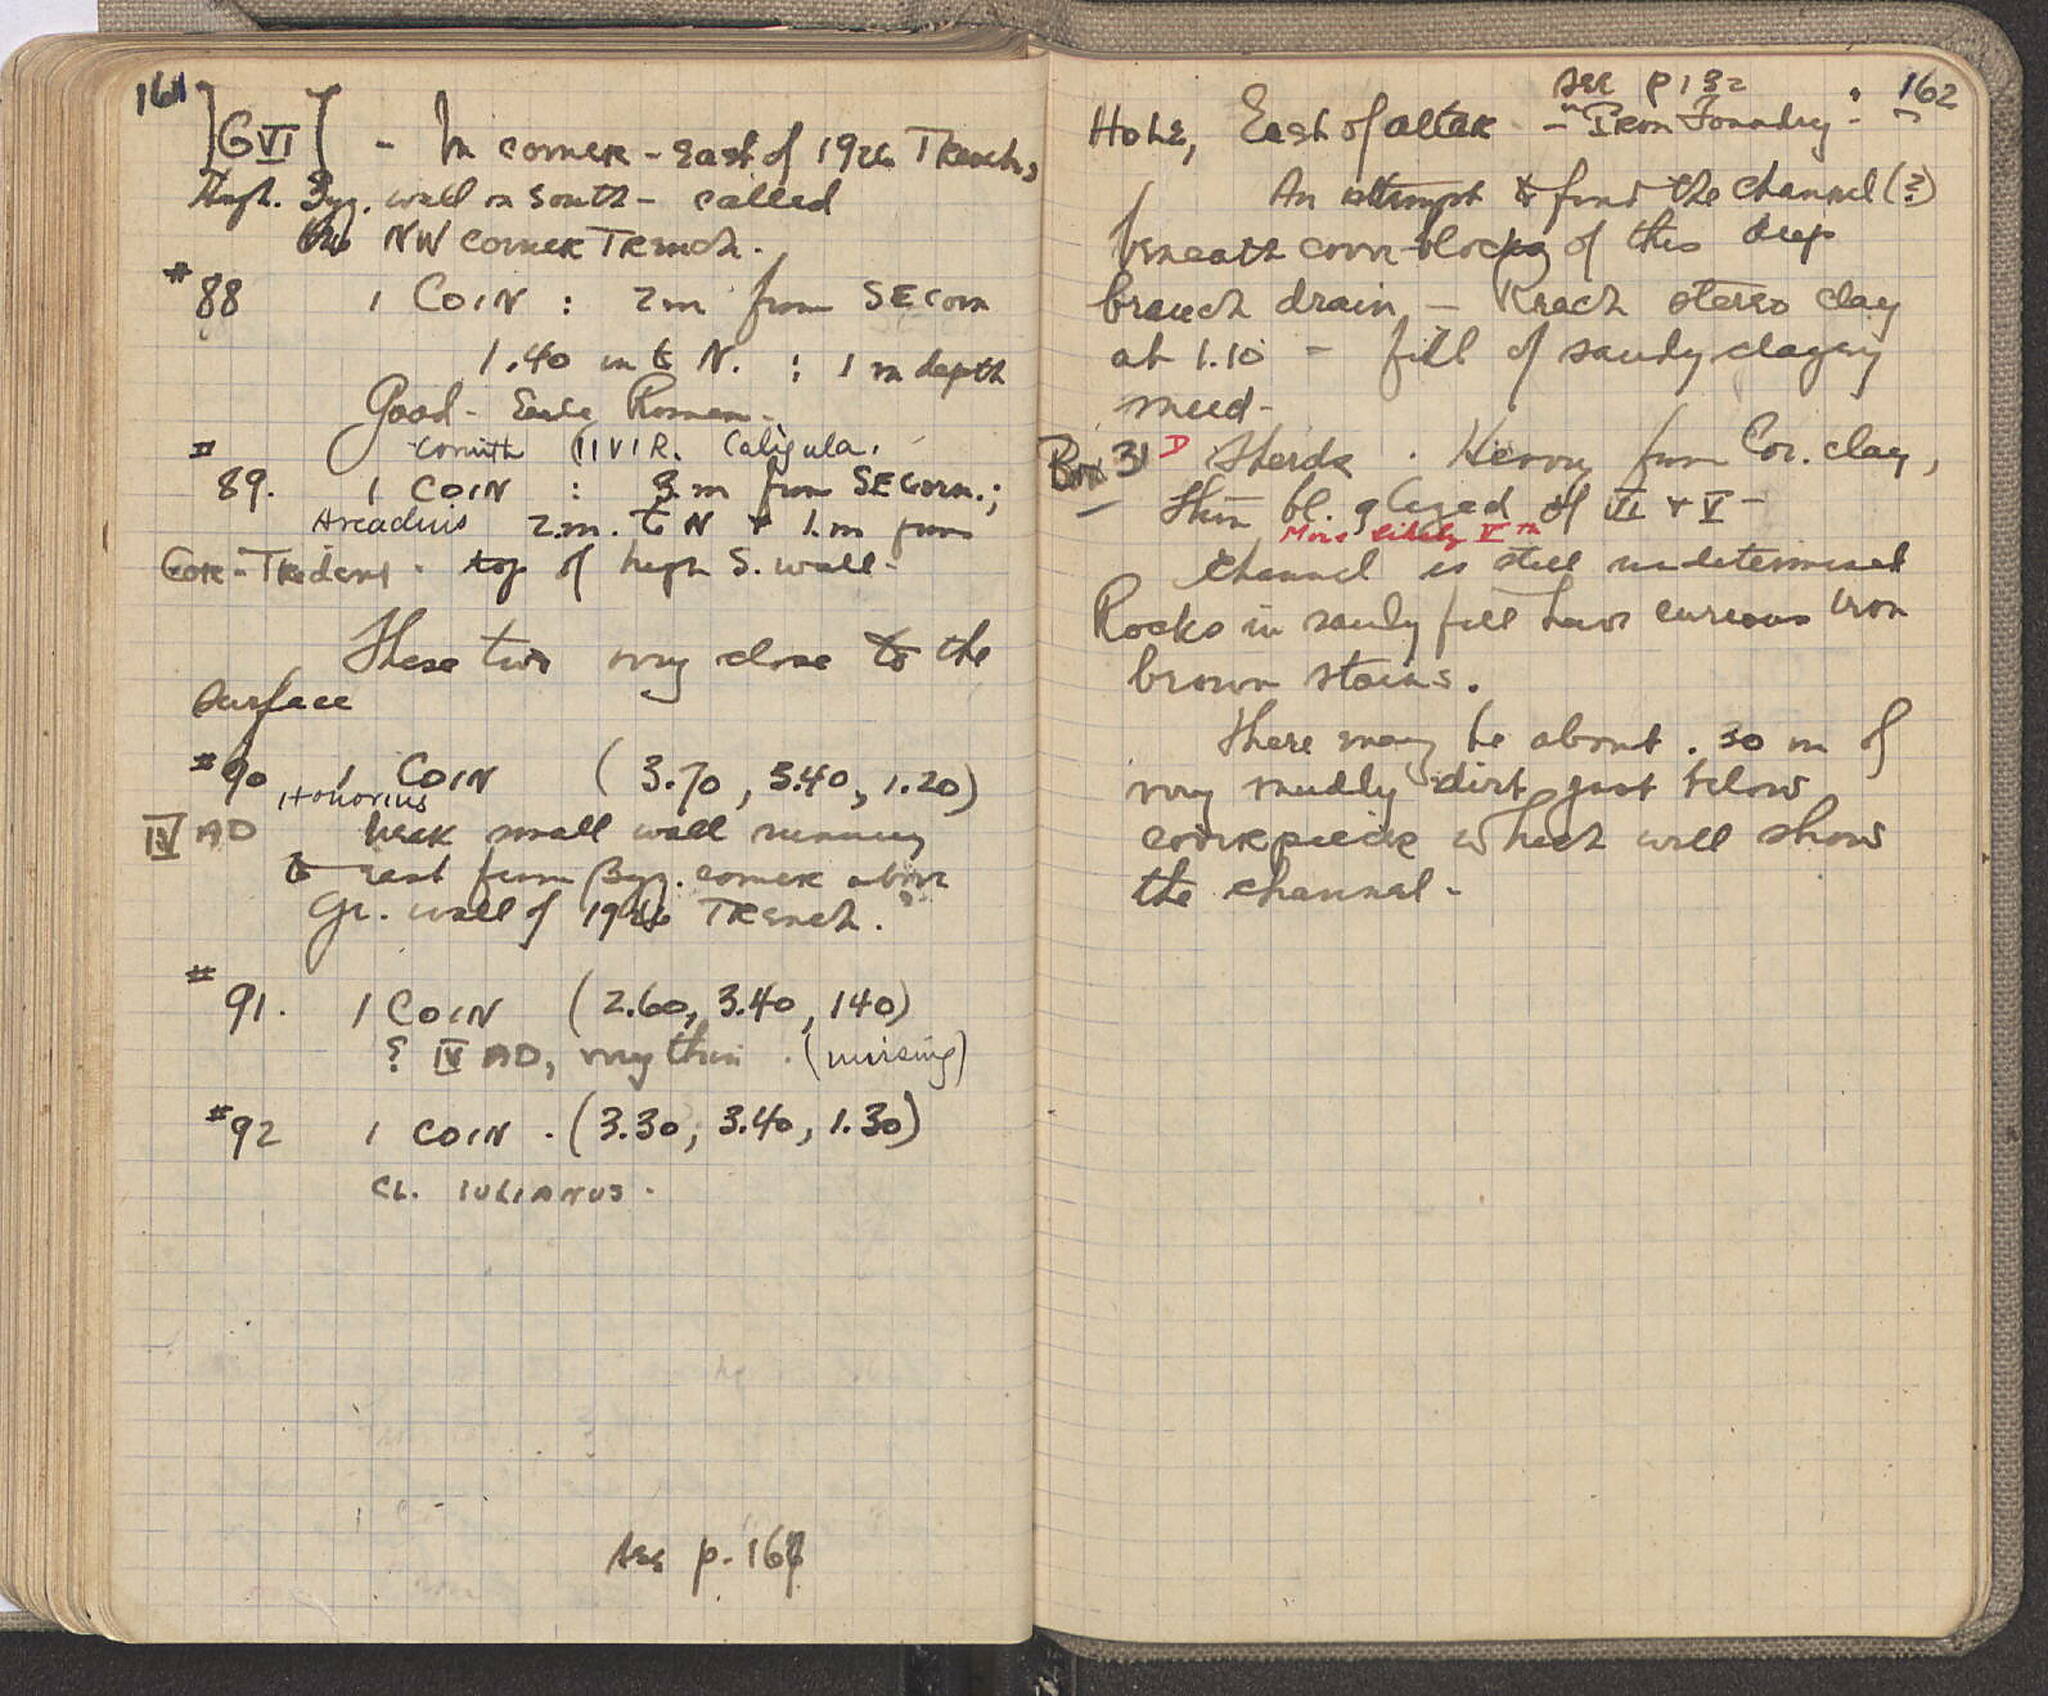 161
]GVI[ - In corner - East of 1926 Trench,
High. Byz. wall on South - called
the NW corner Trench.
#88 1 COIN : 2m from SE Corn
1.40 m to N. : 1 m depth
Good - Early Roman -
Corinth IIVIR. Caligula.
#89. 1 COIN : 3.m from SE Corn.;
Arcadius 2.m. to N & 1.m from
top of high S. wall -
These two very close to the
surface
#90 1 COIN (3.70, 3.40, 1.20)
Honorius
IV AD near small wall running
to east from Byz. corner above
Gr. wall of 1926 Trench.
#91. 1 COIN (2.60, 3.40, 140)
? IV AD, very thin . (missing)
#92 1 COIN . (3.30, 3.40, 1.30)
CL. IULIANUS .
see p. 167
see p 132 162
Hole, East of altar - "Iron Foundry" -
An attempt to find the channel (?)
beneath cover blocks of this deep
branch drain - Reach stereo clay
at 1.10 - fill of sandy clayey
mud -
Box 31 D Sherds . Heavy from Cor. clay,
thin bl. glazed of VI & V -
More likely Vth
Channel is still undetermined
Rocks in sandy fill have curious iron
brown stains.
There may be about .30 m of
very muddy dirt just below
coverpiece which will show
the channel -